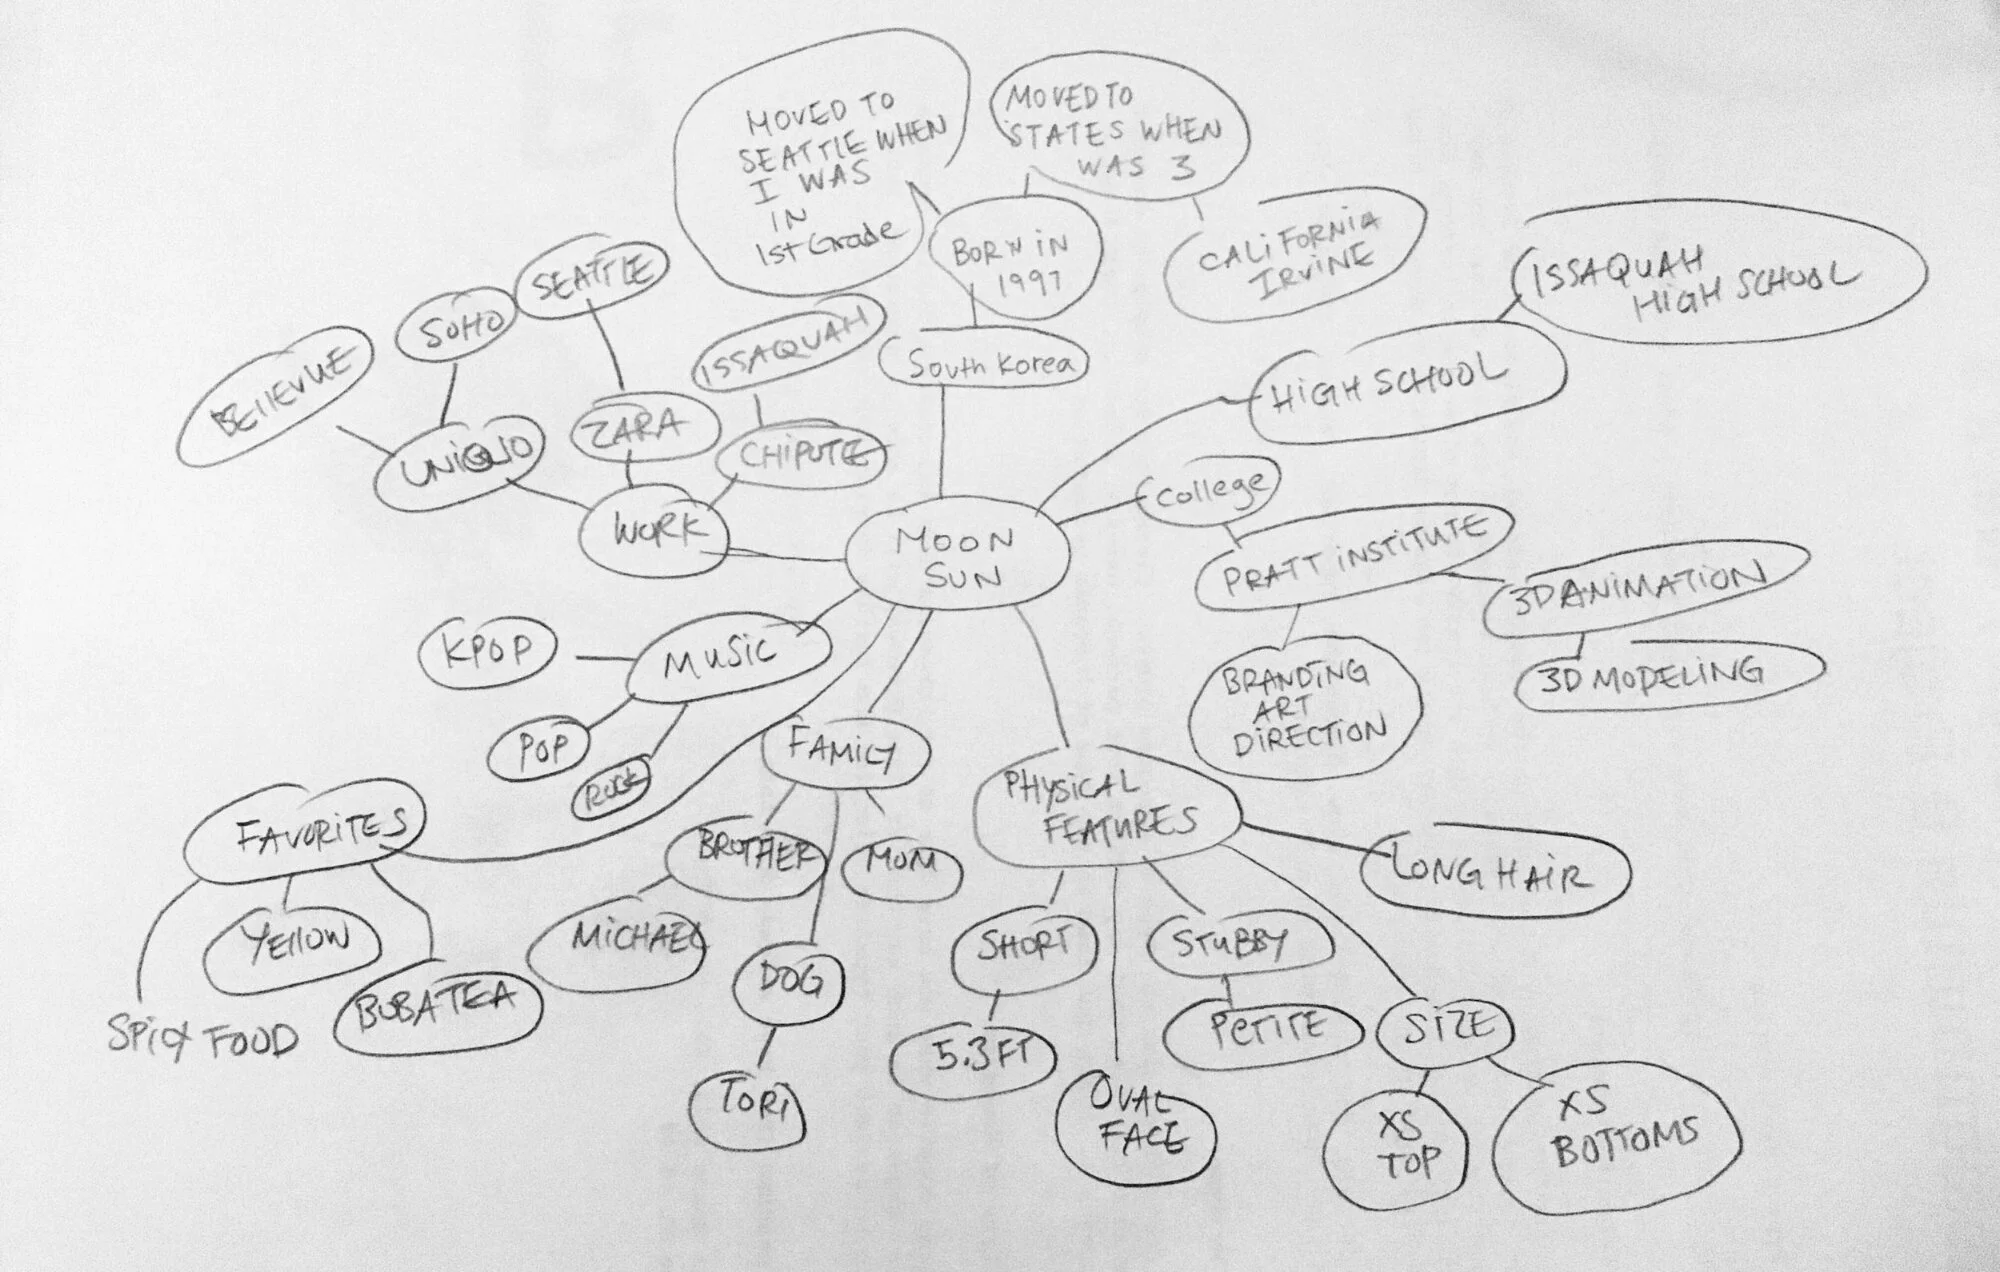 MOVED TO
SEATTLE WHEN
I WAS
IN
1st Grade
MOVED TO
STATES WHEN
WAS 3
BORN iN
1997
CALiFORNiA
IRViNE
ISSAQUAH
HiGH SCHOOL
SEATTLE
SOHO
BEllEVUE
ISSAQUAH
South Korea
HiGH SCHOOL
ZARA
UNiQLO
CHiPOTLE
WORK
College
MOON
SUN
PRATT iNSTiTUTE
3D ANiMATiON
3D MODELiNG
BRANDiNG
ART
DiRECTiON
KPOP
MUSiC
POP
ROCK
FAMiLY
PHYSiCAL
FEATURES
FAVORiTES
BROTHER
MOM
LONG HAiR
YEllOW
MiCHAEL
SHORT
STUBBY
DOG
BOBA TEA
SPiCY FOOD
5.3 FT
PETiTE
SiZE
TORi
OVAL
FACE
XS
TOP
XS
BOTTOMS